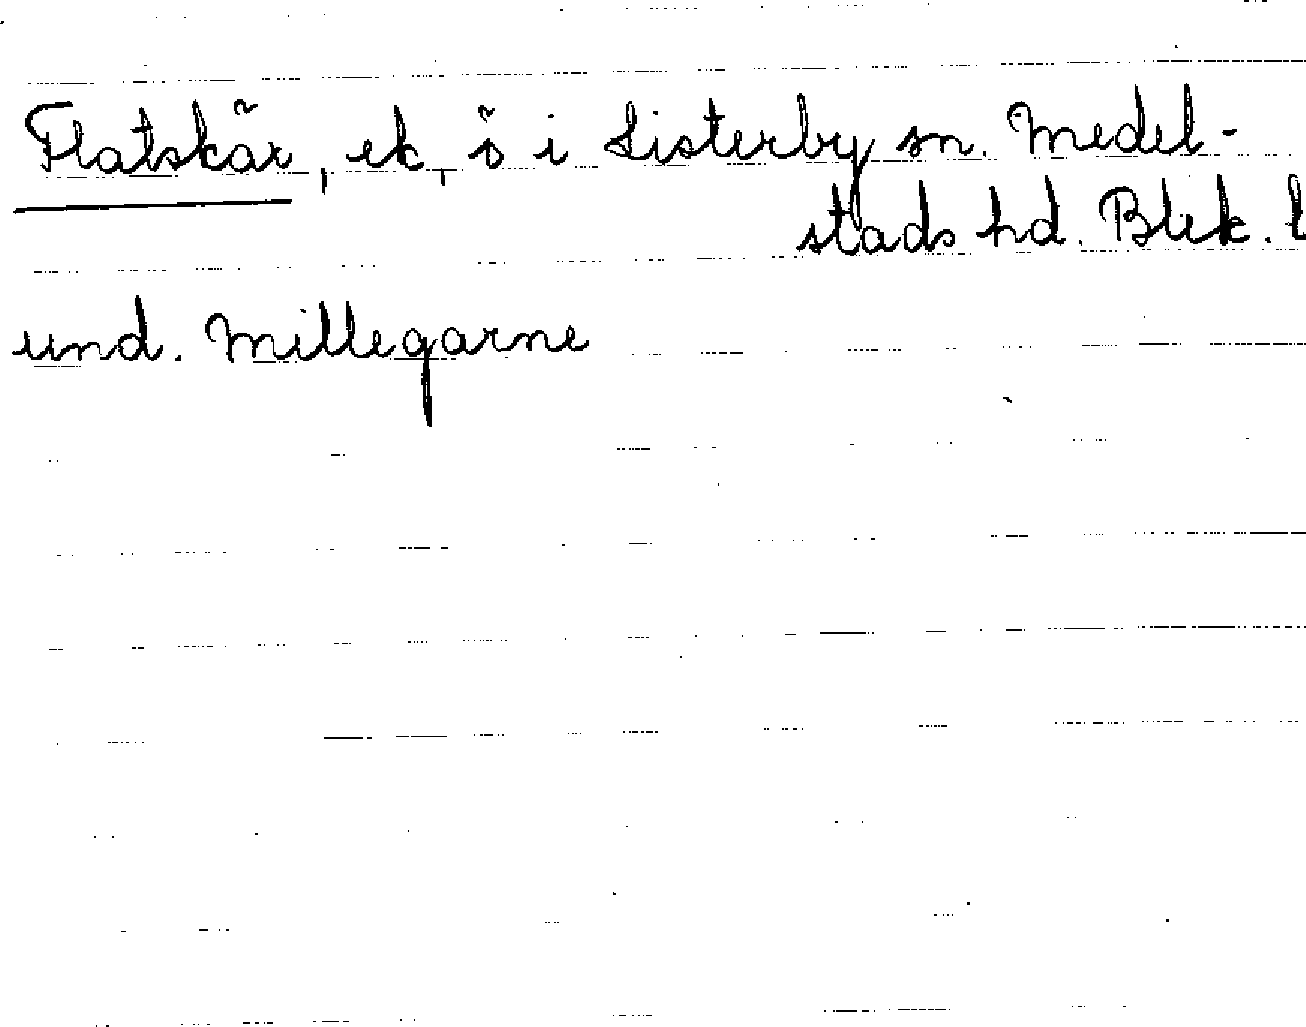 Flatskär, ek, ö i Listerby sn. Medel-
stads hd. Blek. l
und. Millegarne